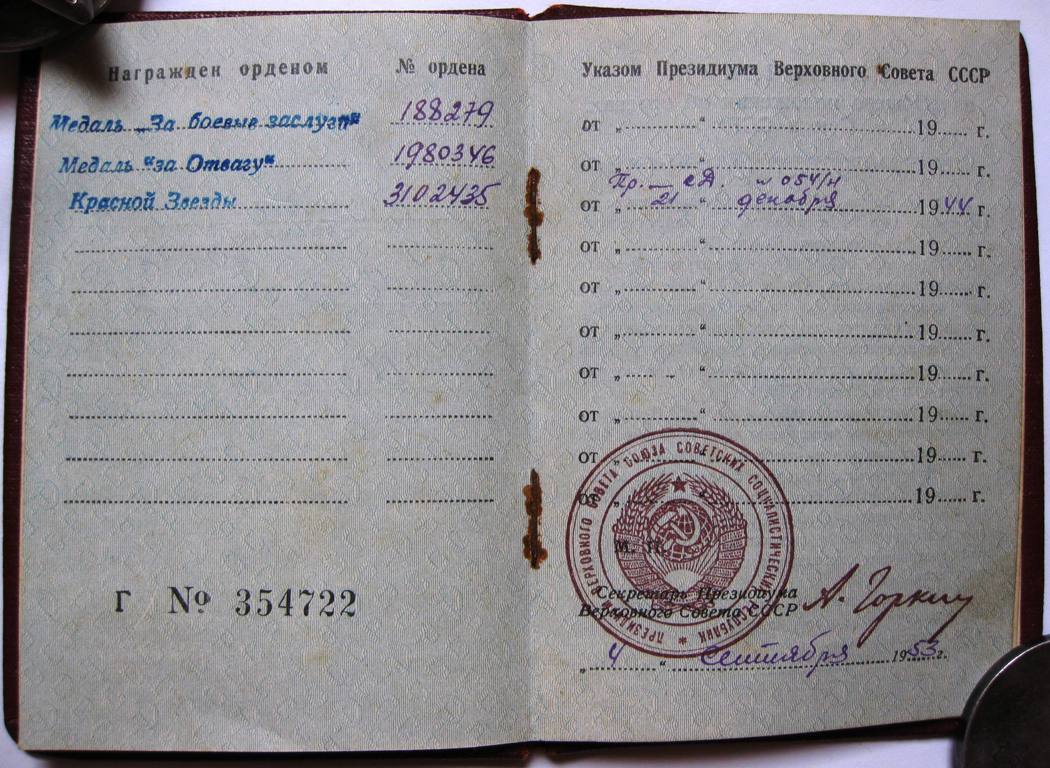 Награжден орденом № ордена
Медаль „За боевые заслуги“ 188279
Медаль "за Отвагу" 1980346
Красной Звезды 3102435
Г № 354722
Указом Президиума Верховного Совета СССР
от „ “ 19 г.
от „ “ 19 г.
Пр. сд. № 054/н
от „ 21 “ декабря 1944 г.
от „ “ 19 г.
от „ “ 19 г.
от „ “ 19 г.
от „ “ 19 г.
от „ “ 19 г.
от „ “ 19 г.
от „ “ 19 г.
ПРЕЗИДИУМ ВЕРХОВНОГО СОВЕТА СОЮЗА СОВЕТСКИХ СОЦИАЛИСТИЧЕСКИХ РЕСПУБЛИК
М. П.
Секретарь Президиума
Верховного Совета СССР А. Горкин
„ 4 “ Сентября 1953 г.